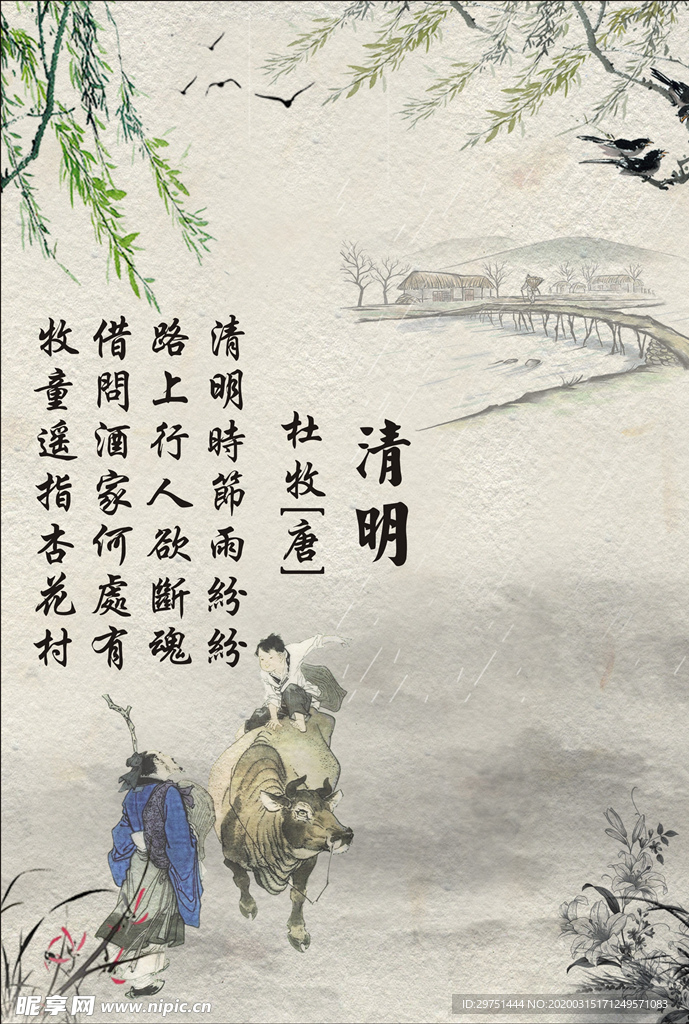 清明
杜牧[唐]
清明時節雨紛紛
路上行人欲斷魂
借問酒家何處有
牧童遥指杏花村
昵享网 www.nipic.cn
ID:29751444 NO:20200315171249571083